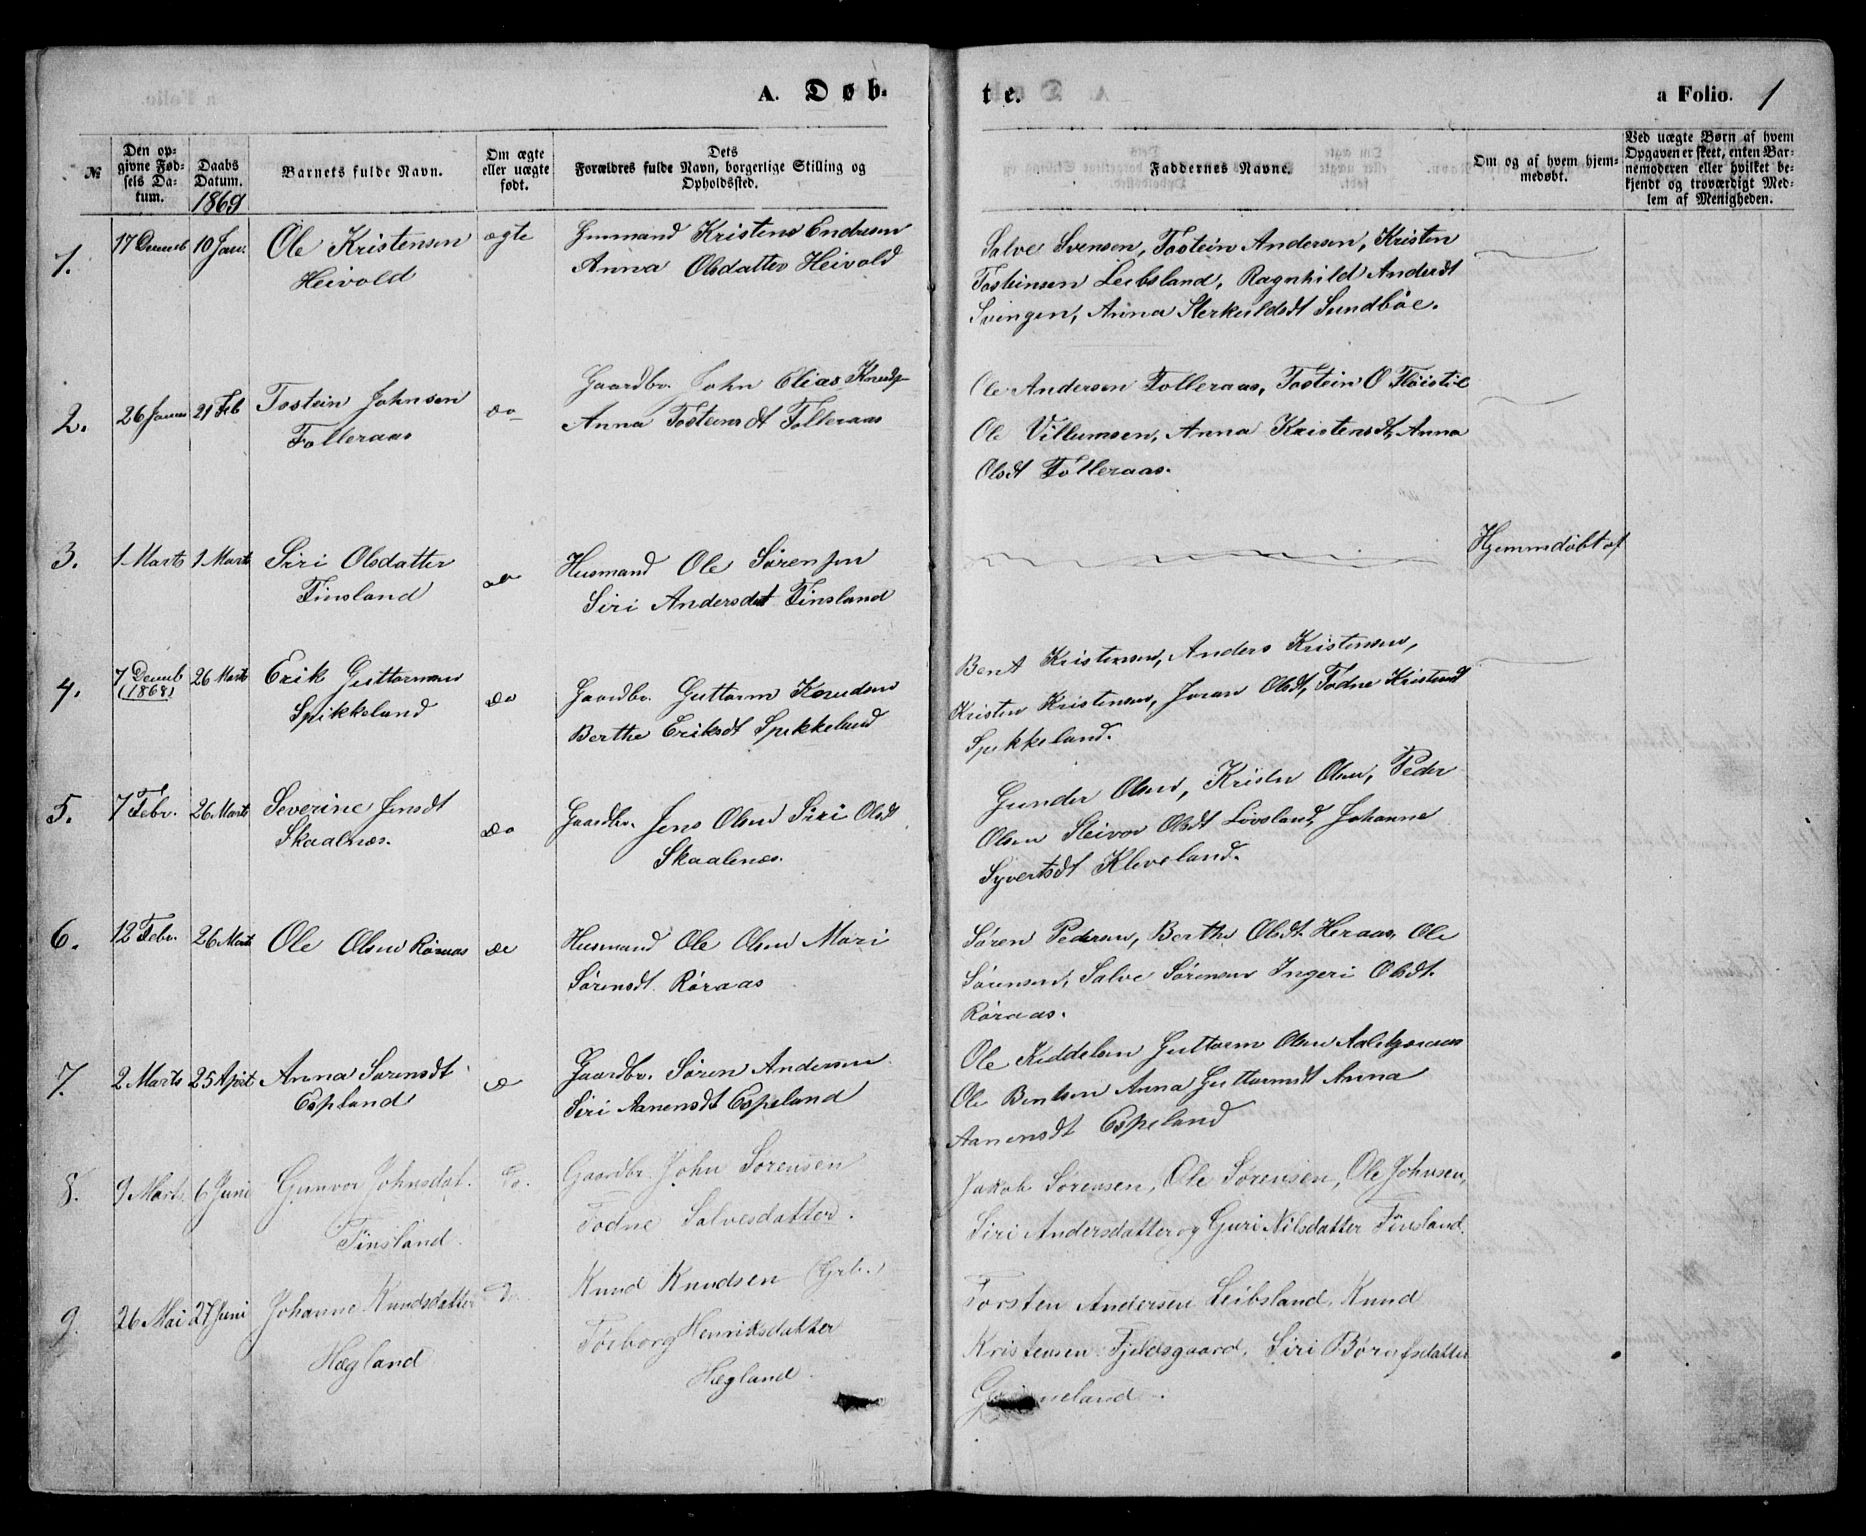 A. Døb-
te.
a Folio. 1
№
Den op-
givne Fød-
sels Da-
tum.
Daabs
Datum.
1869
Barnets fulde Navn.
Om ægte
eller uægte
født.
Dets
Forældres fulde Navn, borgerlige Stilling og
Opholdssted.
Faddernes Navne.
Om og af hvem hjem-
medøbt.
Ved uægte Børn af hvem
Opgaven er skeet, enten Bar-
nemoderen eller hvilket be-
kjendt og troværdigt Med-
lem af Menigheden.
1. 17 Decemb 10 Jan. Ole Kristensen
Heivold
ægte
Kristens Endresen
Anna Olsdatter Heivold
Salve Svensen, Tostein Andersen, Kristen
Tosteinsen Leibsland, Ragnhild Andersdt
Svingen, Anna Sterkuldsdt Sundbøe.
2. 26 Januar 21 Feb Tostein Johnsen
Folleraas
do
Gaardbr. John Elias Knuds
Anna Tosteinsdt Folleraas
Ole Andersen Folleraas, Tostein O Fløistøl
Ole Villumsen, Anna Kristensdt, Anna
Olsdt Folleraas.
3. 1 Marts 1 Marts Siri Olsdatter
Finsland
do
Husmand Ole Sørensen
Siri Andersdat Finsland
Hjemmdøbt af
4. 7 Decemb
(1868)
26 Marts Erik Guttormsen
Spikkeland
do
Gaardbr. Guttorm Knudsen
Berthe Eriksdt Spikkeland
Bent Kristensen, Anders Kristensen,
Kristen Kristensen, Joran Olsdt, Todne Kristensdt
Spikkeland.
5. 7 Febr. 26 Marts Severine Jensdt
Skaalnæs.
do
Gaardbr. Jens Olsen Siri Olsdt
Skaalenæs.
Gunder Olsen, Kristen Olsen, Peder
Olsen Steivor Olsdt Løvsland, Johanne
Syvertsdt Kleveland.
6. 12 Febr. 26 Marts Ole Olsen Røraas do
Husmand Ole Olsen Mari
Sørensdt Røraas
Søren Pedersen, Berthe Olsdt Heraas, Ole
Sørensen, Salve Sørensen Ingeri Olsdt.
Røraas.
7. 2 Marts 25 April Anna Sørensdt
Espeland
do
Gaardbr. Søren Andersen
Siri Aanensdt Espeland
Ole Keddelsen Guttorm Olsen
Ole Bentsen Anna Guttormsdt Anna
Aanensdt Espeland
8. 9 Marts 6 Juni Gunvor Johnsdat.
Finsland.
Do.
Gaardbr. John Sørensen
Todne Salvesdatter.
Jakob Sørensen, Ole Sørensen, Ole Johnsen,
Siri Andersdatter og Guri Nilsdatter Finsland.
9. 26 Mai 27 Juni Johanne Knudsdatter
Hægland
Do.
Knud Knudsen (Grb.)
Tørborg Henriksdatter
Hægland.
Torsten Andersen Leibsland, Knud
Kristensen Fjeldsgaard, Siri Børufsdatter